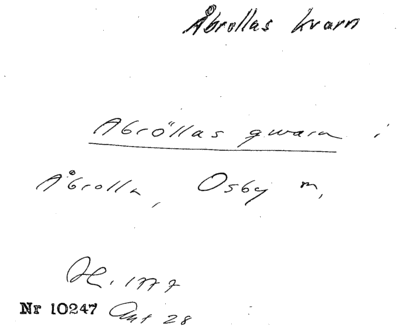 Åbrollas kvarn
Abröllas qwarn i
Åbrolla, Osby m,
1777
Nr 10247 Ant 28